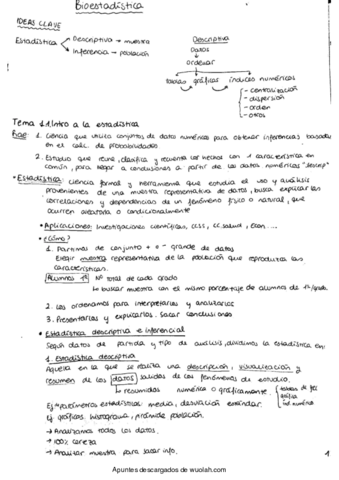 Bioestadística
IDEAS CLAVE
Estadística
Descriptiva → muestra
Inferencia → población
Descriptiva
Datos
↓
ordenar
tablas gráficas índices numéricos
- centralización
- dispersión
- orden
- otros
Tema 1. Intro a la estadística
Rae: 1. Ciencia que utiliza conjuntos de datos numéricos para obtener inferencias basadas
en el calc. de probabilidades
2. Estudio que reune, clasifica y recuenta los hechos con 1 característica en
común, para llegar a conclusiones a partir de los datos numéricos
• Estadística: ciencia formal y herramienta que estudia el uso y análisis
provenientes de una muestra representativa de datos, busca explicar las
correlaciones y dependencias de un fenómeno físico o natural, que
ocurren aleatoria o condicionalmente
• Aplicaciones: Investigaciones científicas, ccss, cc.salud, Econ....
• ¿Cómo?
1. Partimos de conjunto + o - grande de datos
Elegir muestra representativa de la población que reproduzca las
características.
Alumnos 1º Nº total de cada grado
↳ buscar muestra con el mismo porcentaje de alumnos de 1º/grado
2. Los ordenamos para interpretarlos y analizarlos
3. Presentarlos y explicarlos. Sacar conclusiones
• Estadística descriptiva e inferencial
Según datos de partida y tipo de análisis, dividimos la estadística en:
1. Estadística descriptiva
Aquella en la que se realiza una descripción, visualización y
resumen de los datos salidos de los fenómenos de estudio.
↳ resumidos numérica o gráficamente.
Ej: parámetros estadísticos: media, desviación estándar.
Ej: gráficos: histograma, pirámide población.
→ Analizamos todos los datos.
→ 100% certeza
→ Analizar muestra para sacar info.
1
Apuntes descargados de wuolah.com